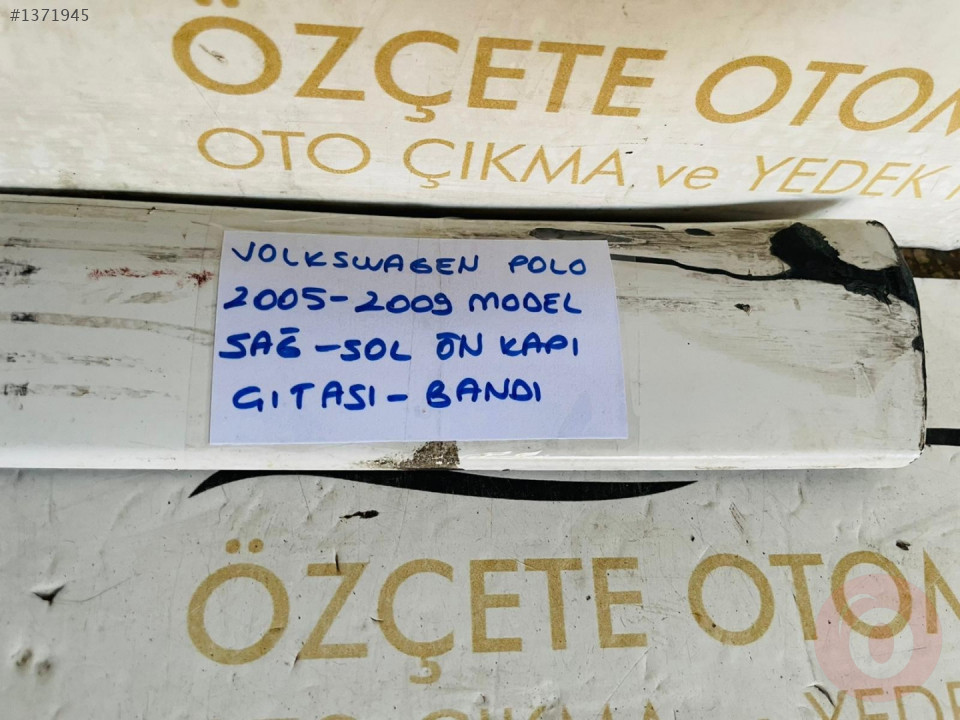 #1371945
ÖZÇETE OTOM
OTO ÇIKMA ve YEDEK
VOLKSWAGEN POLO
2005-2009 MODEL
SAĞ-SOL ÖN KAPI
GITASI- BANDI
ÖZÇETE OTOM
OTO ÇIKMA YEDE